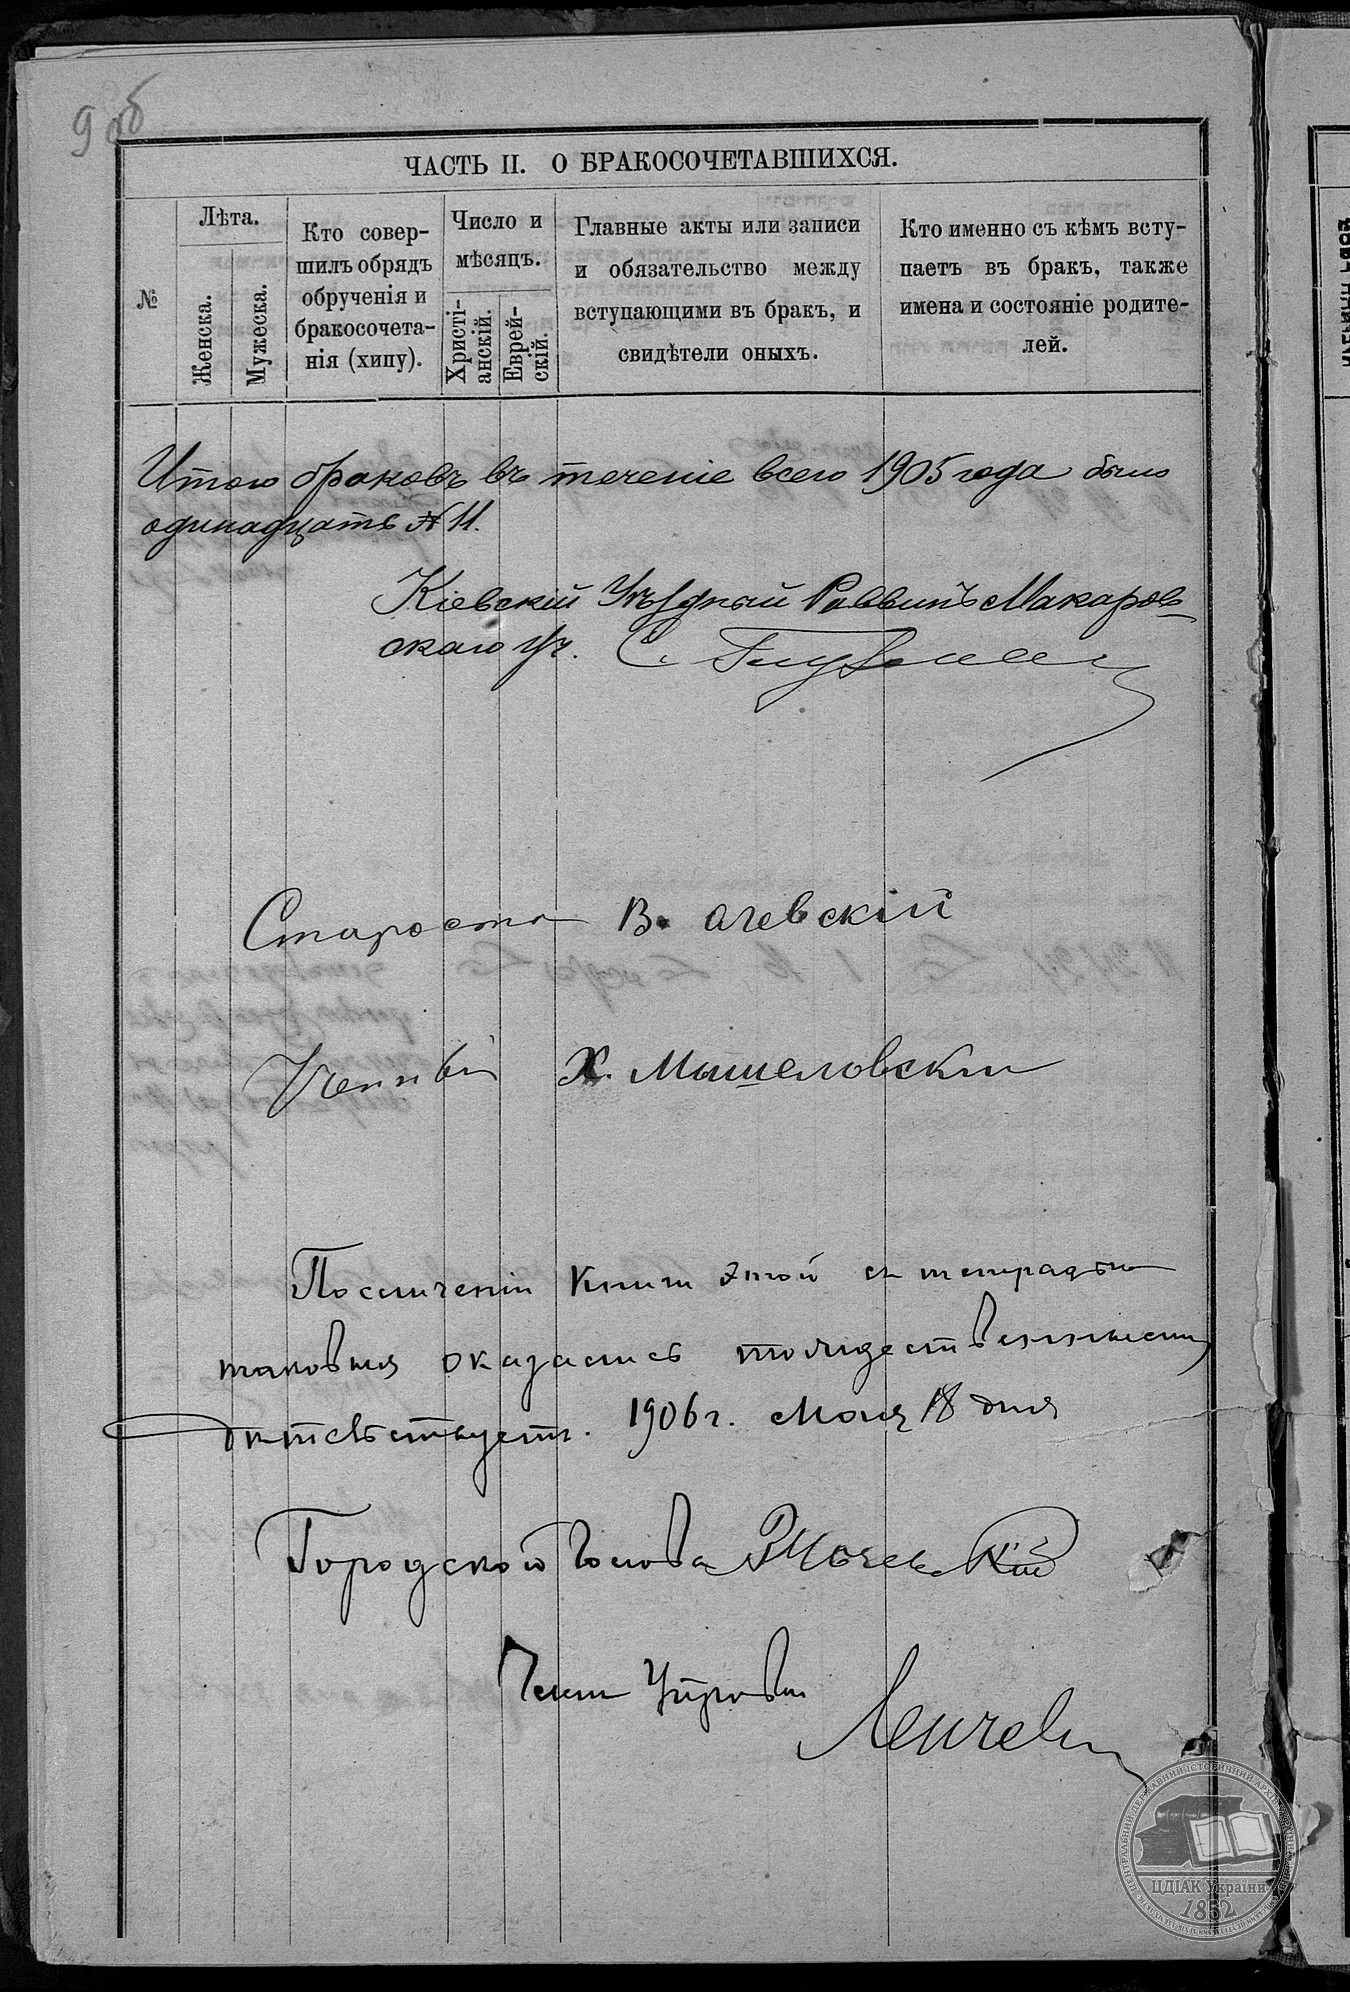 9 об
ЧАСТЬ II. О БРАКОСОЧЕТАВШИХСЯ.
№
Лѣта.
Женска.
Мужеска.
Кто совер-
шилъ обрядъ
обрученія и
бракосочета-
нія (хипу).
Число и
мѣсяцъ.
Христі-
анскій.
Еврей-
скій.
Главные акты или записи
и обязательство между
вступающими въ бракъ, и
свидѣтели оныхъ.
Кто именно съ кѣмъ всту-
паетъ въ бракъ, также
имена и состояніе родите-
лей.
Итого браковъ въ теченіе всего 1905 года было
одинадцать № 11.
Кіевскій Уѣздный Раввинъ Макаров-
скаго уч. С.
Староста В. ачевскій
Ученый Х. Мышеловскій
По сличеніи книги этой съ тетрадью
таковыя оказались тождественными
1906 г. Мая 18 дня
Городской Голова
Членъ Управы
ЦЕНТРАЛЬНИЙ ДЕРЖАВНИЙ ІСТОРИЧНИЙ АРХІВ УКРАЇНИ
ЦДІАК України
1852